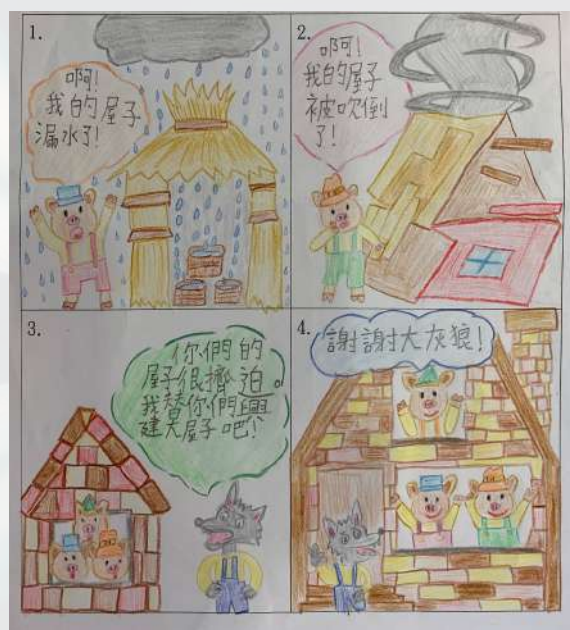 1.
啊!
我的屋子
漏水了!
2.
啊呵!
我的屋子
被吹倒
了!
3.
你們的
屋子很擠迫。
我替你們興
建大屋子吧!
4.
謝謝大灰狼!